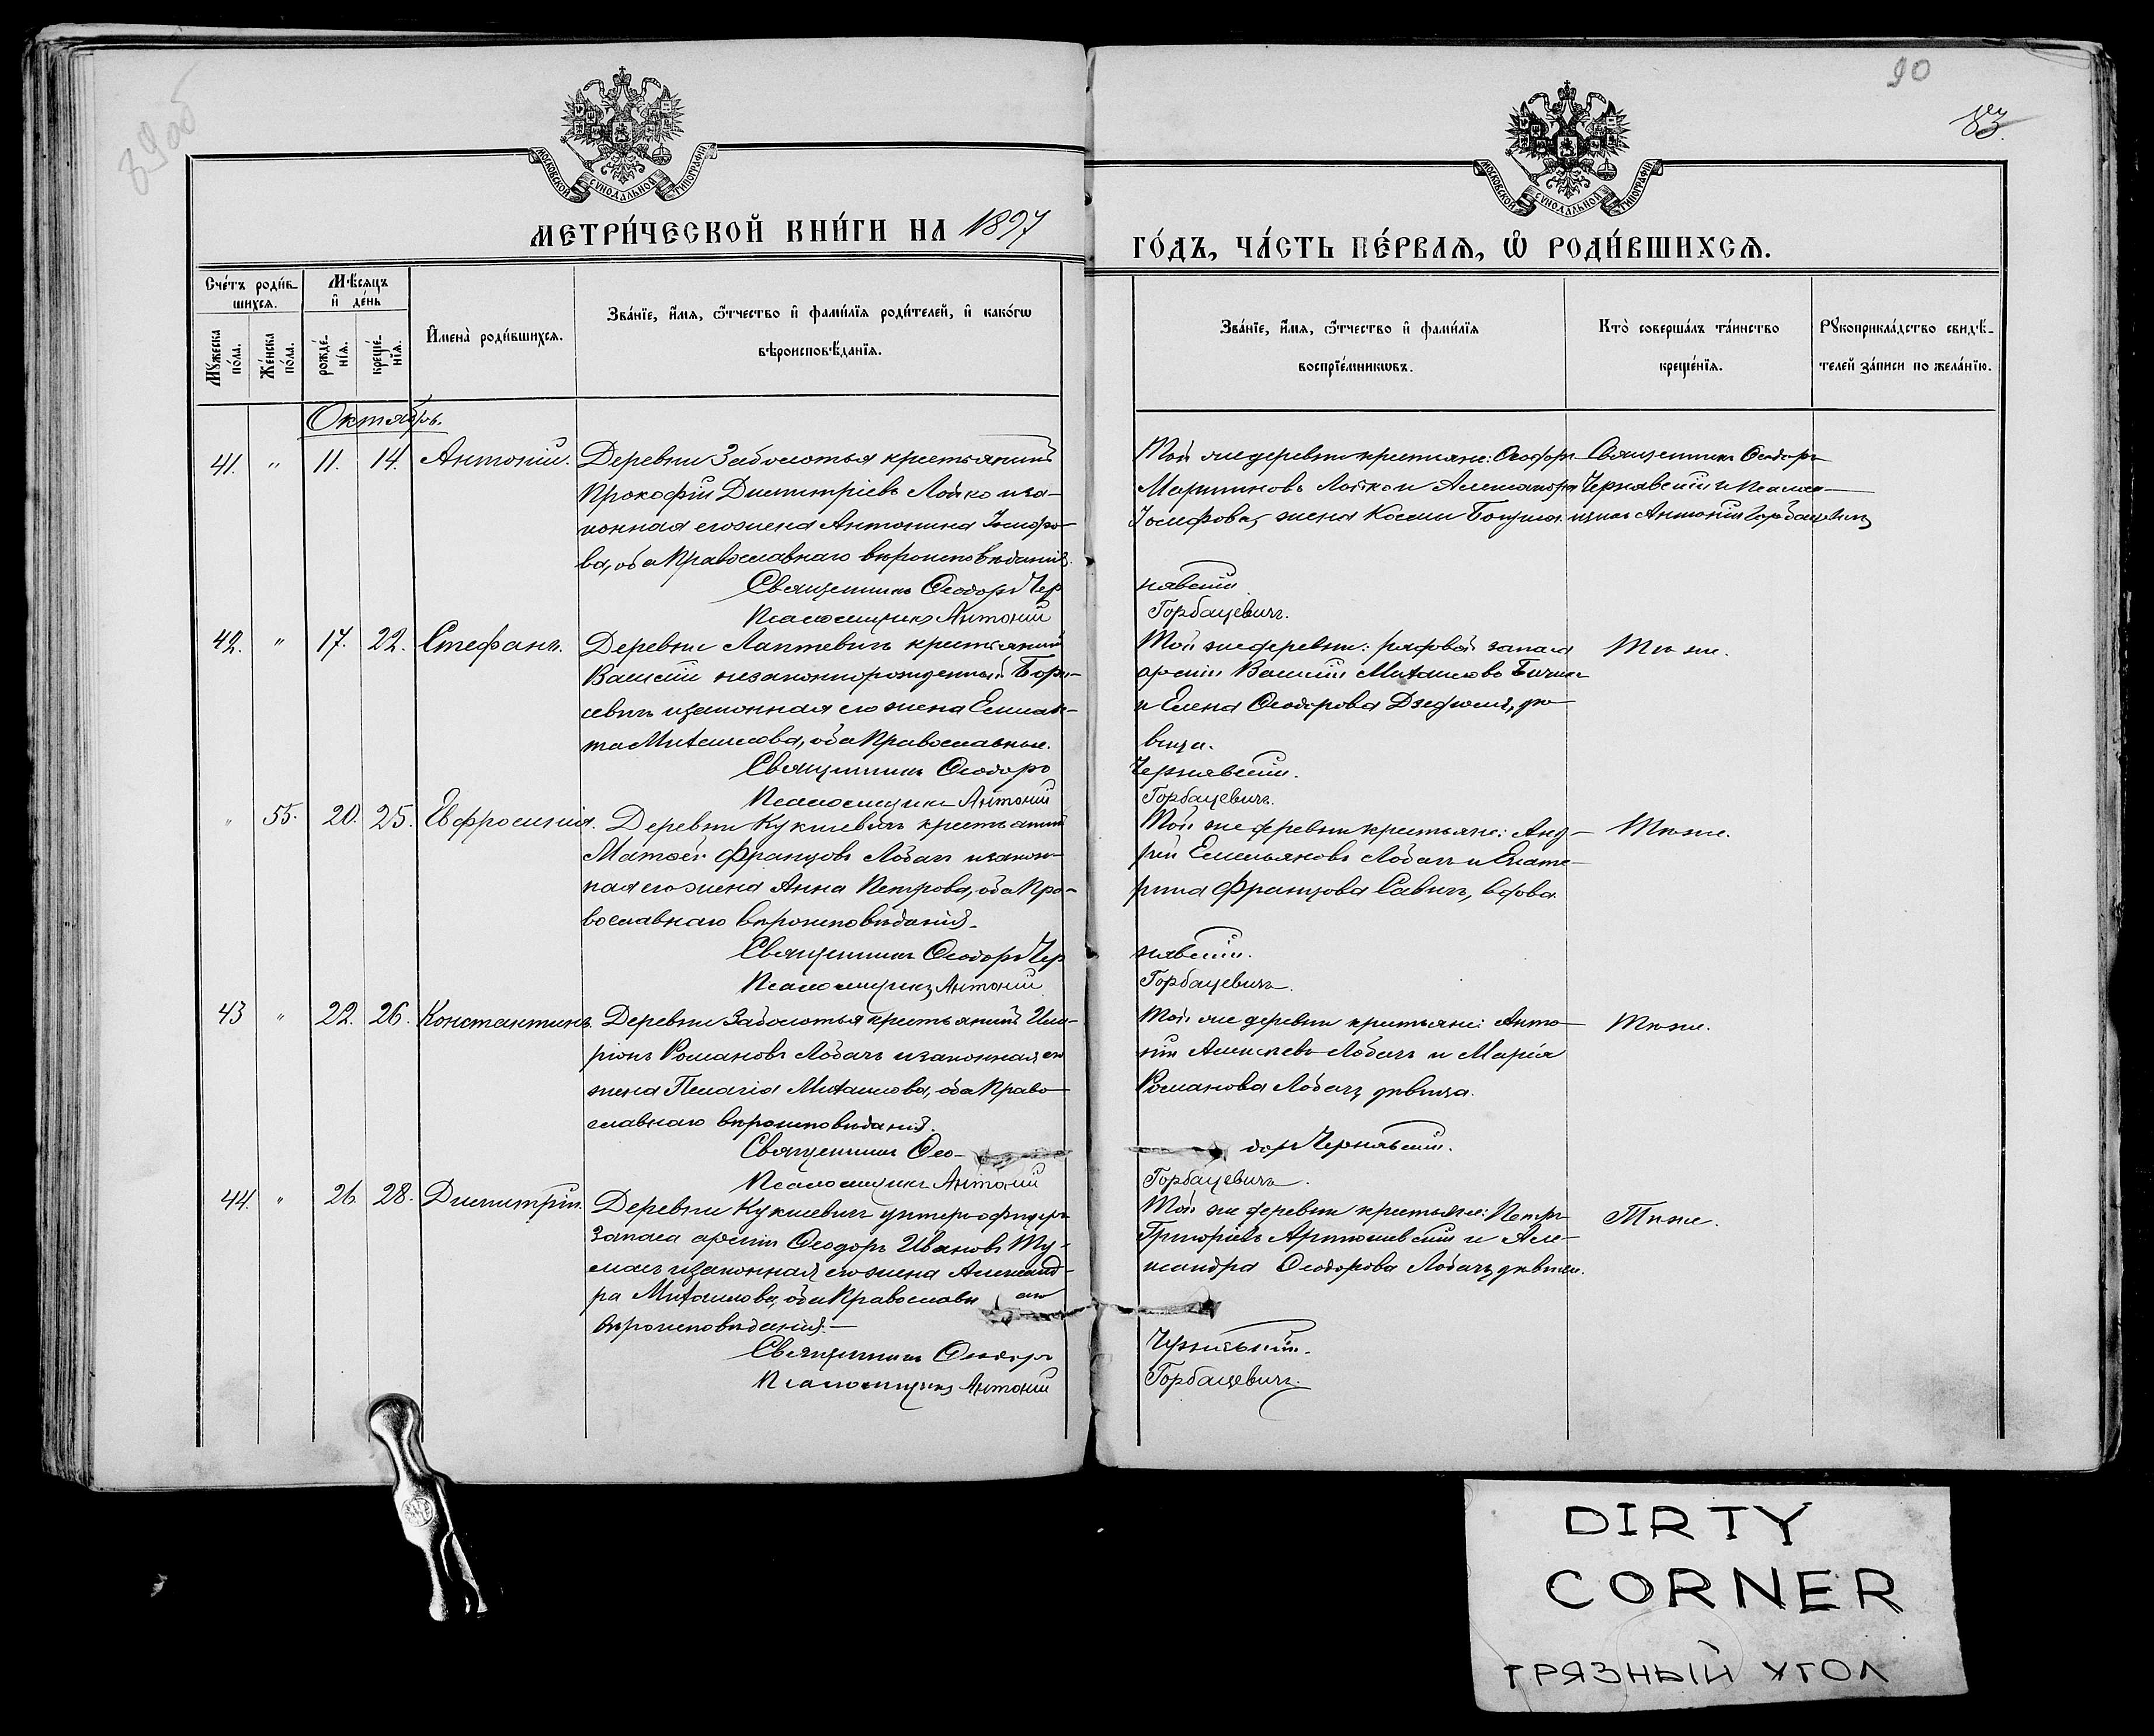 89об
90
83.
МОСКОВСКОЙ СѴНОДАЛЬНОЙ ТИПОГРАФІИ
МОСКОВСКОЙ СѴНОДАЛЬНОЙ ТИПОГРАФІИ
МЕТРИ́ЧЕСКОЙ КНИ́ГИ НА 1897
ГО́ДЪ, ЧА́СТЬ ПЕ́РВАЯ, Ѡ РОДИ́ВШИХСЯ.
Сче́тъ роди́в-
шихся.
Мꙋ́жеска по́ла.
Же́нска по́ла.
Мѣ́сяцъ и де́нь
рожде́-
нія.
креще́-
нія.
Имена̀ роди́вшихся.
Зва́ніе, и́мя, ѻ́тчество и фами́лія роди́телей, и како́гѡ
вѣроисповѣ́данія.
Зва́ніе, и́мя, ѻ́тчество и фами́лія
воспріе́мникѡвъ.
Кто̀ соверша́лъ та́инство
креще́нія.
Рꙋкоприкла́дство свидѣ́-
телей за́писи по жела́нію.
Октябрь.
41. " 11. 14. Антоній. Деревни Заболотья крестьянинъ
Прокофій Димитріевъ Лойко и за-
конная его жена Антонина Іосифо-
ва, оба Православнаго вѣроисповѣданія.
Священникъ Ѳеодоръ Чер
Псаломщикъ Антоній
Той же деревни крестьяне: Ѳеодоръ
Мартиновъ Лойко и Александра
Іосифова, жена Космы
нявскій.
Горбацевичъ.
Священникъ Ѳеодоръ
Чернявскій и Псалом-
щикъ Антоній Горбацевичъ
42. " 17. 22. Стефанъ. Деревни Лаптевичъ крестьянинъ
Василій незаконнорожденный Бори-
севичъ и законная его жена Елиза-
та Михаилова, оба Православные.
Священникъ Ѳеодоръ
Псаломщикъ Антоній
Той же деревни: рядовой запаса
арміи Василій Михаиловъ
и Елена Ѳеодорова дѣ-
вица.
Чернявскій.
Горбацевичъ.
Тѣ же.
" 55. 20. 25. Евфросинія. Деревни Кукшевичъ крестьянинъ
Матѳей Францовъ Лобачъ и закон-
ная его жена Анна Петрова, оба Пра-
вославнаго вѣроисповѣданія.
Священникъ Ѳеодоръ Чер
Псаломщикъ Антоній
Той же деревни крестьяне: Анд-
рей Емельяновъ Лобачъ и Екате-
рина Францова Савичъ, вдова.
нявскій.
Горбацевичъ.
Тѣ же.
43 " 22. 26. Константинъ. Деревни Заболотья крестьянинъ Ила-
ріонъ Романовъ Лобачъ и законная его
жена Пелагія Михаилова, оба Право-
славнаго вѣроисповѣданія.
Священникъ Ѳео-
Псаломщикъ Антоній
Той же деревни крестьяне: Анто-
ній Алексѣевъ Лобачъ и Марія
Романова Лобачъ, дѣвица.
доръ Чернявскій.
Горбацевичъ.
Тѣ же.
44. " 26. 28. Димитрій. Деревни Кукшевичъ унтеръ-офицеръ
запаса арміи Ѳеодоръ Ивановъ Ту-
и законная его жена Александ-
ра Михаилова, оба Православн аго
вѣроисповѣданія.
Священникъ Ѳеодоръ
Псаломщикъ Антоній
Той же деревни крестьяне: Петръ
Григоріевъ и Але-
ксандра Ѳеодорова Лобачъ, дѣвица.
Чернявскій.
Горбацевичъ.
Тѣ же.
DIRTY
CORNER
ГРЯЗНЫЙ УГОЛ